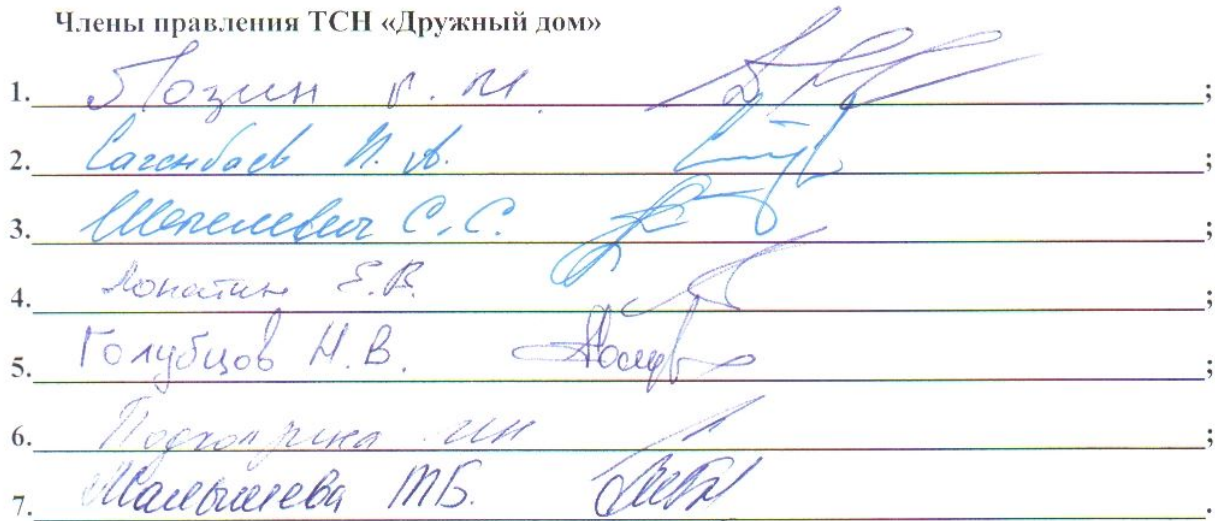 Члены правления ТСН «Дружный дом»
1. Лозин Г. М. ;
2. Сагенбаев И. А. ;
3. Шепелевич С. С. ;
4. Лопатин Е. В. ;
5. Голубцов Н. В. ;
6. ;
7. Малышева М Б. .